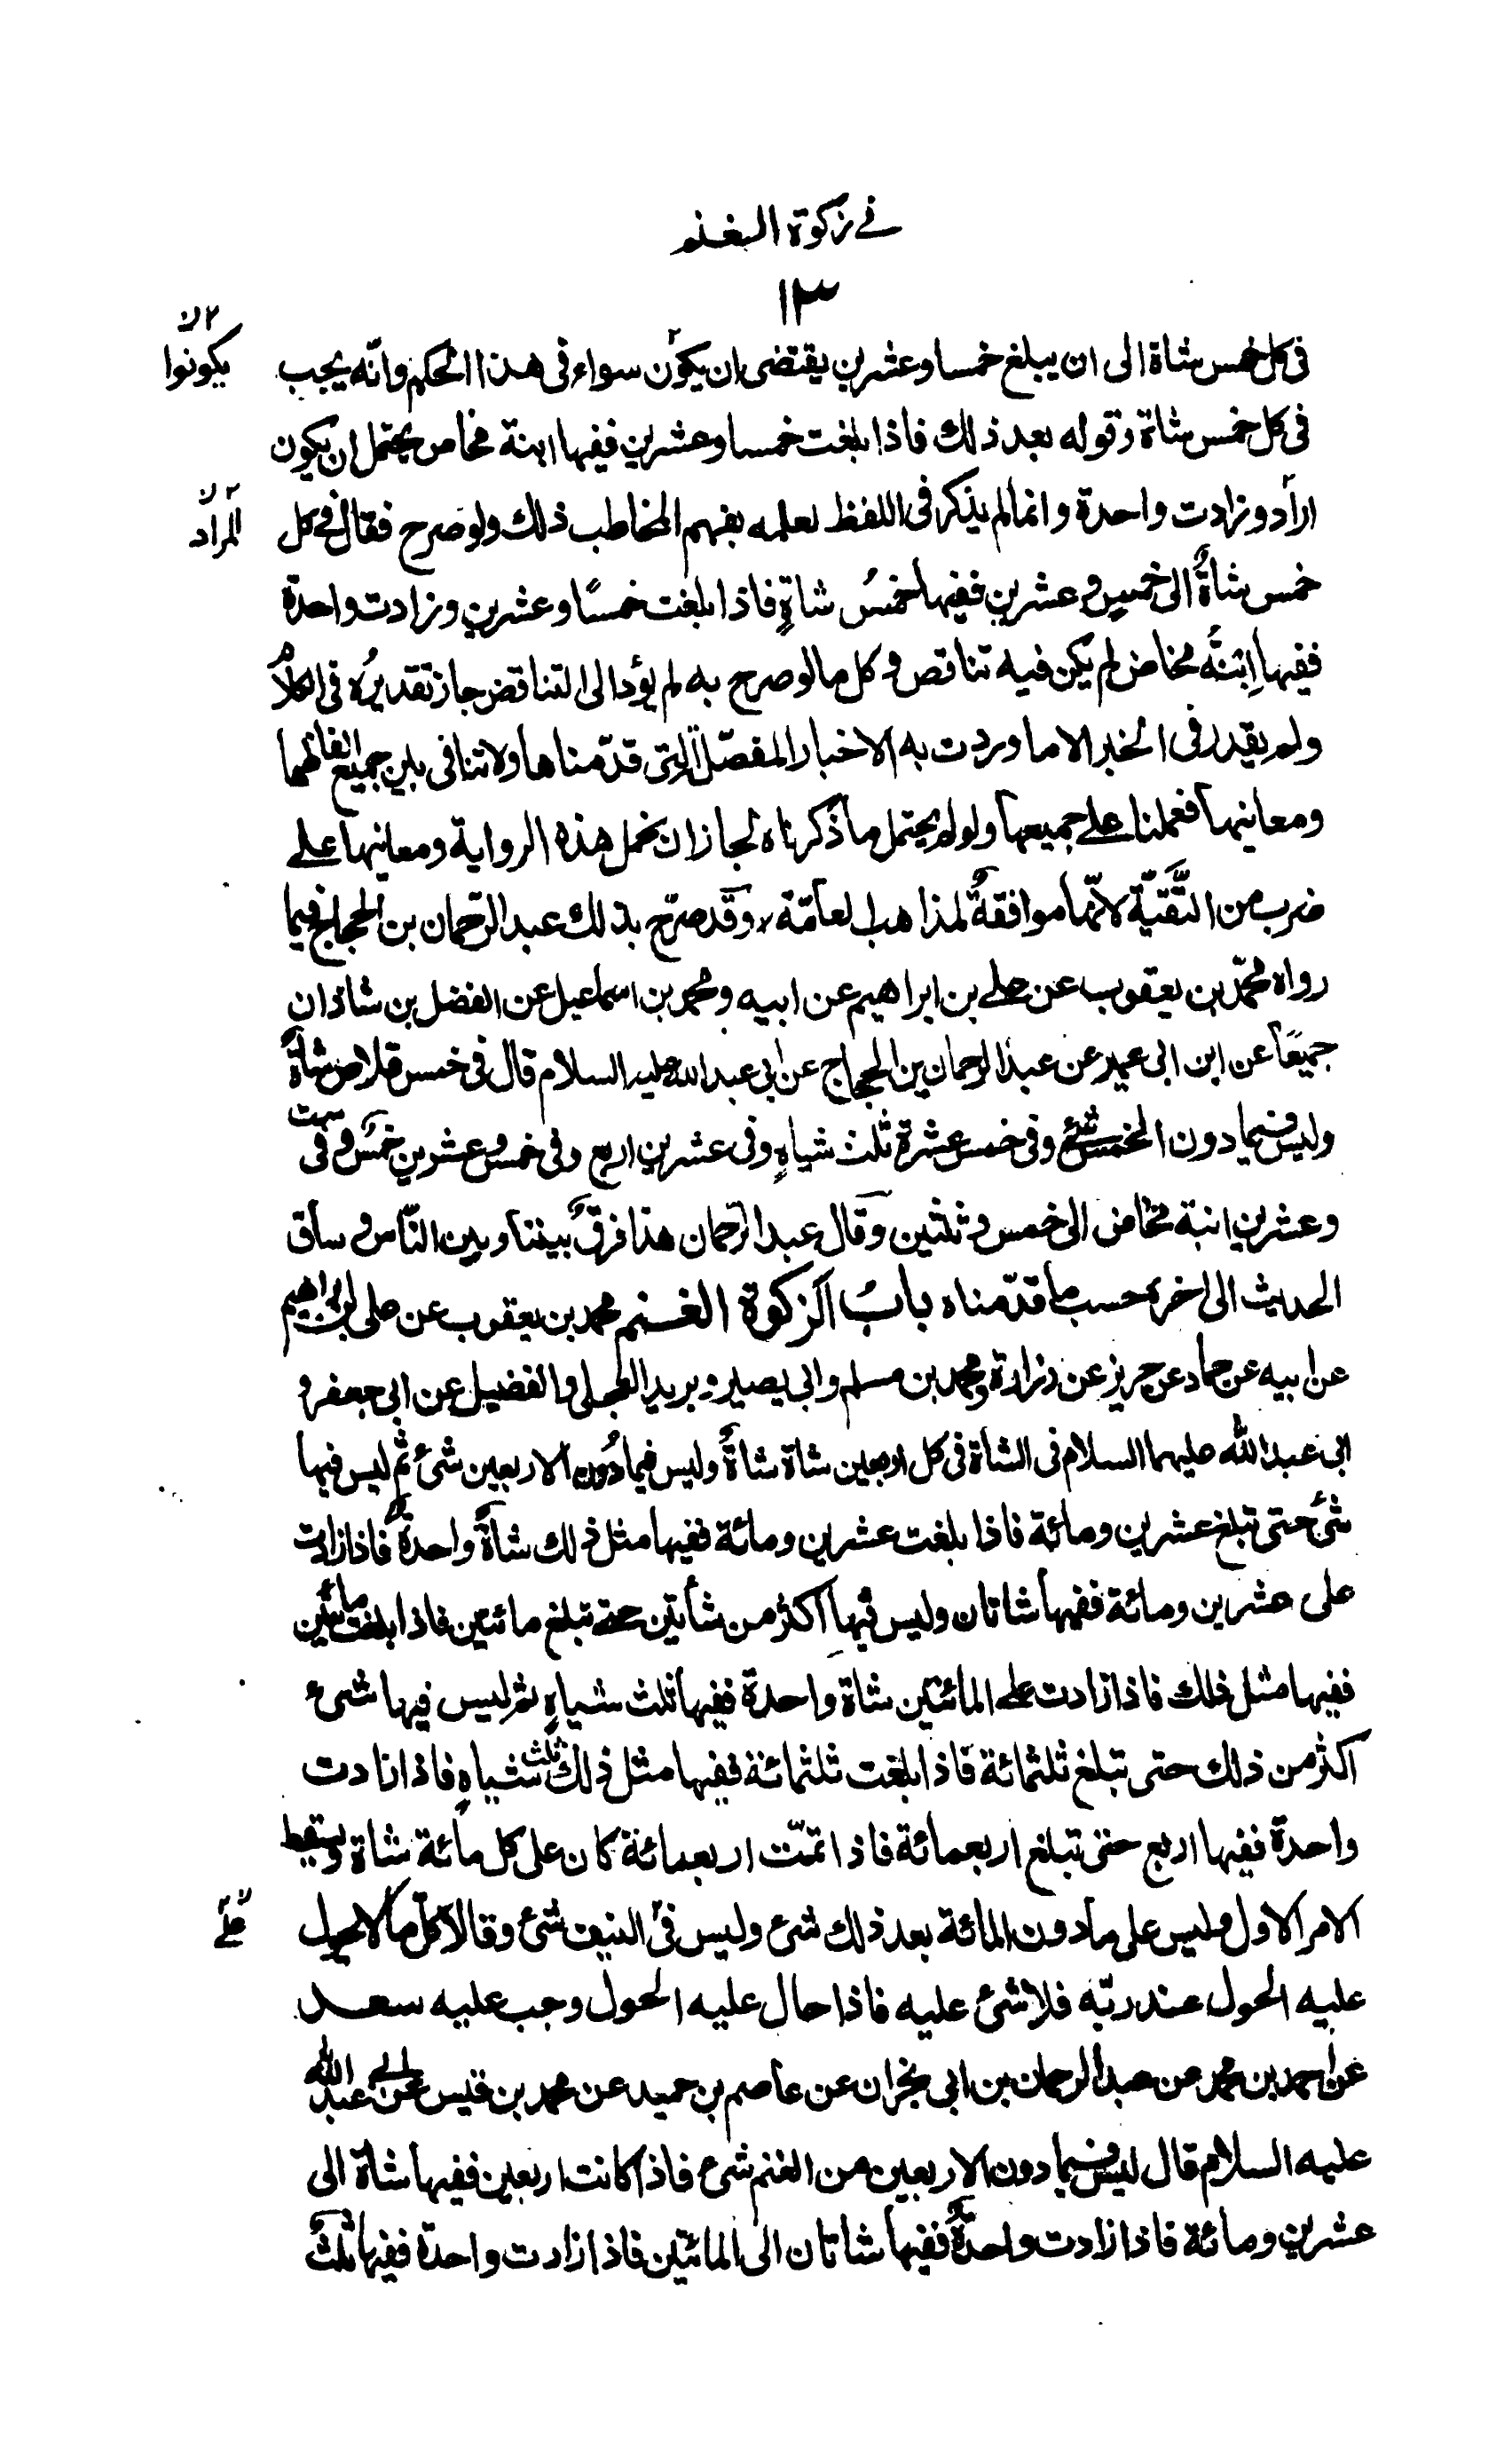 في زكوة الغنم
١٣
في كل خمس شاة الى ان يبلغ خمسا وعشرين يقتضى ان يكون سواء فى هذا الحكم وانّه يجب
يكونوا
فى كل خمس شاة وقوله بعد ذلك فاذا بلغت خمسا وعشرين ففيها ابنة مخاض يحتمل ان يكون
اراد وزادت واحدة وانما لم يذكر فى اللفظ لعلمه بفهم المخاطب ذلك ولو صرح فقال في كل
المراد
خمس شاةٌ الى خمس وعشرين ففيها خمسُ شاةٍ فاذا بلغت خمسًا وعشرين وزادت واحدة
ففيها اِبنةُ مخاض لم يكن فيه تناقض و كل ما لو صرح به لم يؤد الى التناقض جاز تقديرُه فى الكلام
ولم يقدر فى الخبر الا ما وردت به الاخبار المفصّلة التى قدّمناها ولا تنافى بين جميع الفاظها
ومعانيها فعملنا على جميعها ولو لم يحتمل ما ذكرناه لجاز ان نحمل هذه الرواية ومعانيها على
ضرب من التَّقيّة لانّها موافقةٌ لمذاهب العامّة وقد صرّح بذلك عبد الرّحمان بن الحجاج فيما
رواه محمّد بن يعقوب عن على بن ابراهيم عن ابيه ومحمد بن اسماعيل عن الفضل بن شاذان
جميعًا عن ابن ابى عمير عن عبد الرحمان بن الحجاج عن ابى عبد الله عليه السلام قال فى خمس قلاص شاةٌ
وليس فيما دون الخمس شئ وفى خمس عشرة ثلث شياهٍ وفى عشرين اربع وفى خمس وعشرين خمسٌ وفى ست
وعشرين ابنة مخاض الى خمس وثلثين وقال عبد الرّحمان هذا فرقٌ بيننا وبين النّاس و ساق
الحديث الى اخره حسب ما قدّمناه بابُ الزكوة الغنم محمد بن يعقوب عن على بن ابراهيم
عن ابيه عن حماد عن حريز عن زرارة ومحمد بن مسلم وابى بصير وبريد العجلى والفضيل عن ابى جعفر و
ابى عبد الله عليهما السلام فى الشاة فى كل اربعين شاة شاةٌ وليس فيما دُون الاربعين شئ ثم ليس فيها
شئ حتى تبلغ عشرين ومائة فاذا بلغت عشرين ومائة ففيها مثل ذلك شاةٌ واحدةٌ فاذا زادت
على عشرين ومائة ففيها شاتان وليس فيها اكثر من شاتين حتى تبلغ مائتين فاذا بلغت مائتين
ففيها مثل ذلك فاذا زادت على المائتين شاة واحدة ففيها ثلث شياهٍ ثم ليس فيها شئ
اكثر من ذلك حتى تبلغ ثلثمائة فاذا بلغت ثلثمائة ففيها مثل ذلك ثلث شياهٍ فاذا زادت
واحدة ففيها اربع حتى تبلغ اربعمائة فاذا تمّت اربعمائة كان على كل مائة شاة وسقط
الامر الاول وليس على ما دون المائة بعد ذلك شئ وليس فى النيف شئ وقالا كل ما لا يحول
على
عليه الحول عند ربّه فلا شئ عليه فاذا حال عليه الحول وجب عليه سعد
عن احمد بن محمد عن عبد الرحمان بن ابى نجران عن عاصم بن حميد عن محمد بن قيس عن ابى عبد الله
عليه السلام قال ليس فيما دون الاربعين من الغنم شئ فاذا كانت اربعين ففيها شاة الى
عشرين ومائة فاذا زادت واحدةٌ ففيها شاتان الى المائتين فاذا زادت واحدة ففيها ثلثٌ